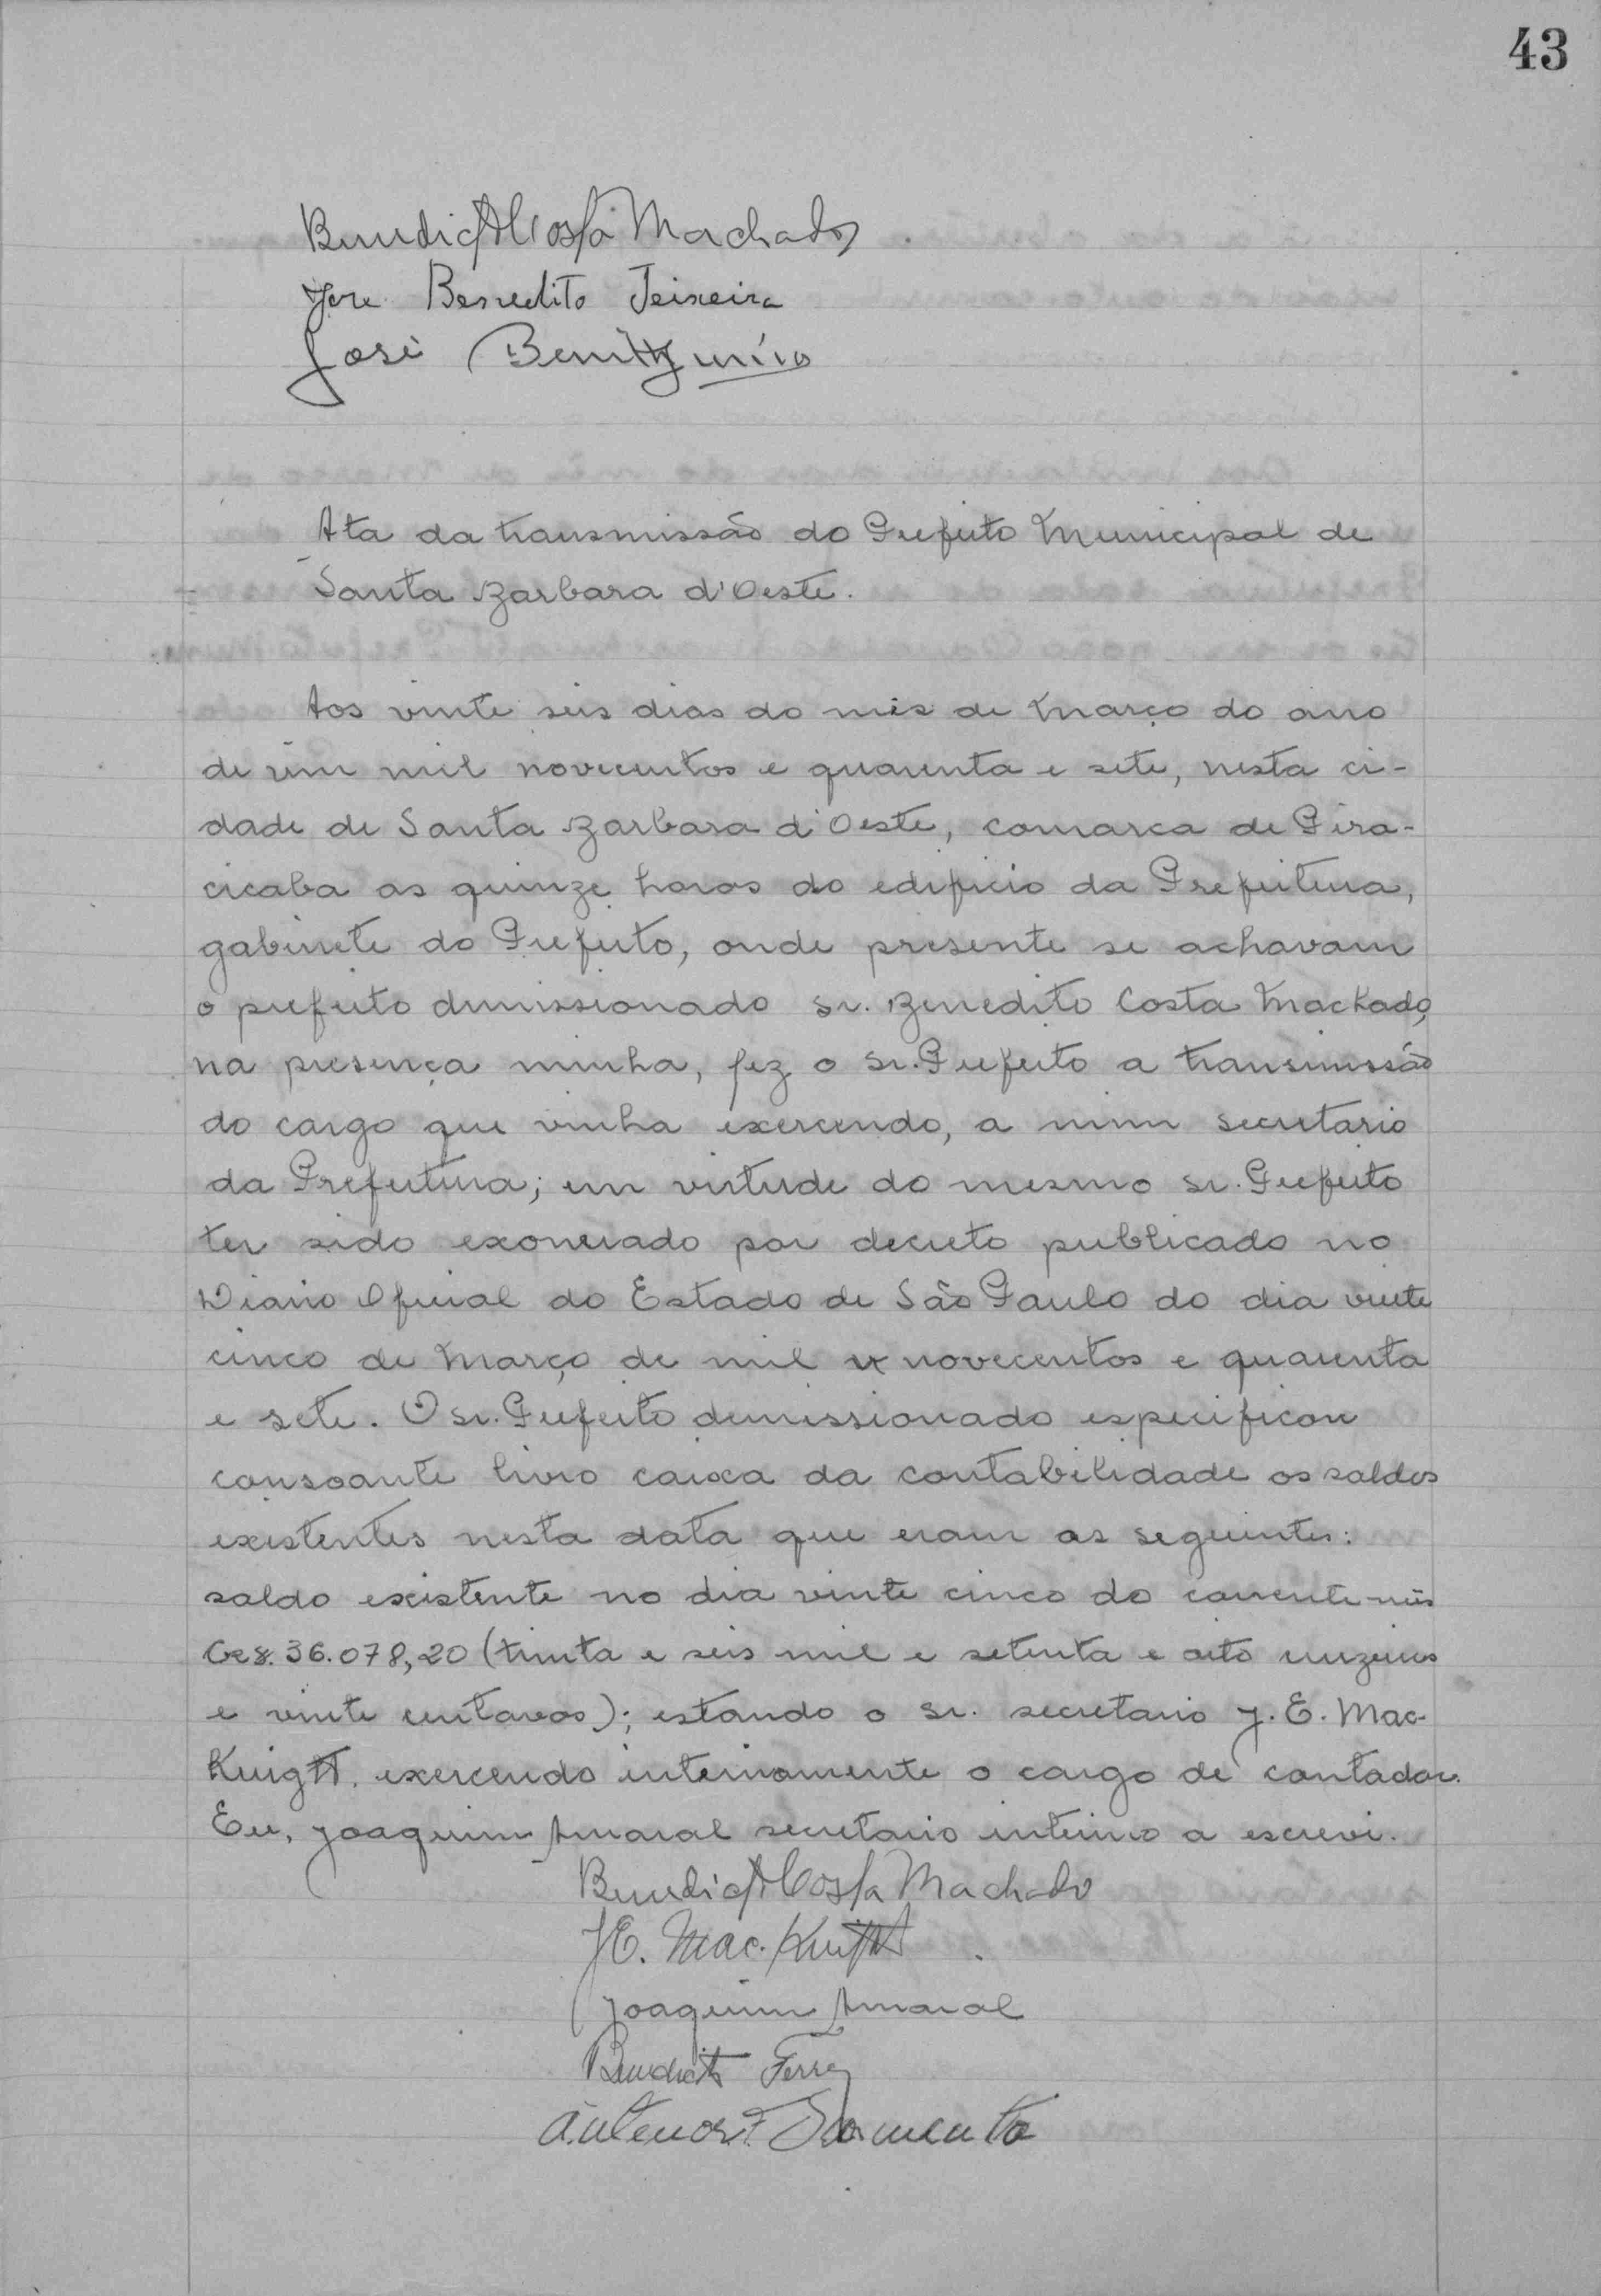 43
Benedicto Costa Machado
José Benedito Teixeira
José Júnior
Ata da transmissão do Prefeito Municipal de
Santa Barbara d'Oeste.
Aos vinte seis dias do mês de Março do ano
de um mil novecentos e quarenta e sete, nesta ci-
dade de Santa Barbara d'Oeste, comarca de Pira-
cicaba as quinze horas do edificio da Prefeitura,
gabinete do Prefeito, onde presente se achavam
o prefeito dimissionado sr. Benedito Costa Machado,
na presença minha, fez o sr. Prefeito a transmissão
do cargo que vinha exercendo, a mim secretario
da Prefeitura; em virtude do mesmo sr. Prefeito
ter sido exonerado por decreto publicado no
Diario Oficial do Estado de São Paulo do dia vinte
cinco de Março de mil novecentos e quarenta
e sete. O sr. Prefeito demissionado especificou
consoante livro caixa da contabilidade os saldos
existentes nesta data que eram as seguintes:
saldo existente no dia vinte cinco do corrente mês
Cr$. 36.078,20 (trinta e seis mil e setenta e oito cruzeiros
e vinte centavos); estando o sr. secretario J. E. Mac-
Knigtt. exercendo interinamente o cargo de contador.
Eu, Joaquim Amaral secretario interino a escrevi.
Benedicto Costa Machado
J E. Mac. Knight
Joaquim Amaral
Benedicto
Antenor F.